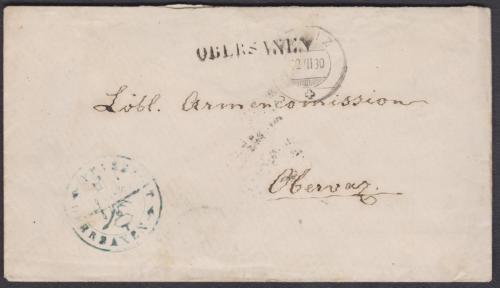 OBERSAXEN
22 VII 30
Löbl. Armencomission
Obervaz.
OBERSAXEN